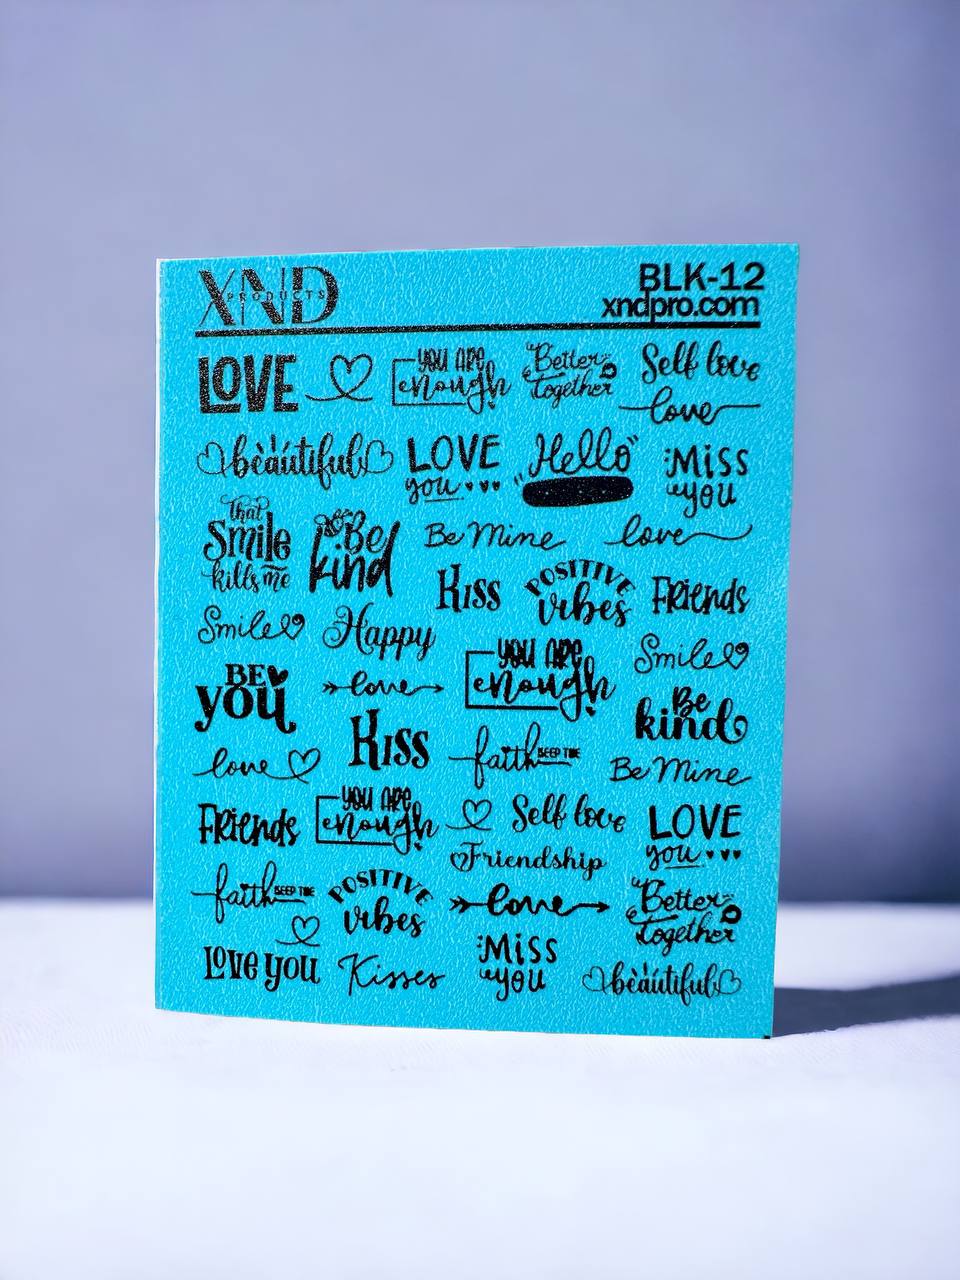 XND
PRODUCTS
BLK-12
xndpro.com
LOVE
you are
enough
Better
together
Self love
love
beautiful
LOVE
you
"Hello"
Miss
you
That
Smile
kills me
Be
kind
Be Mine
love
Kiss
POSITIVE
vibes
Friends
Smile
Happy
you are
enough
Smile
BE
you
love
Be
kind
Kiss
faith
love
Be Mine
Friends
you are
enough
Self love
LOVE
you
Friendship
faith
POSITIVE
vibes
love
Better
together
Love you
Kisses
Miss
you
beautiful